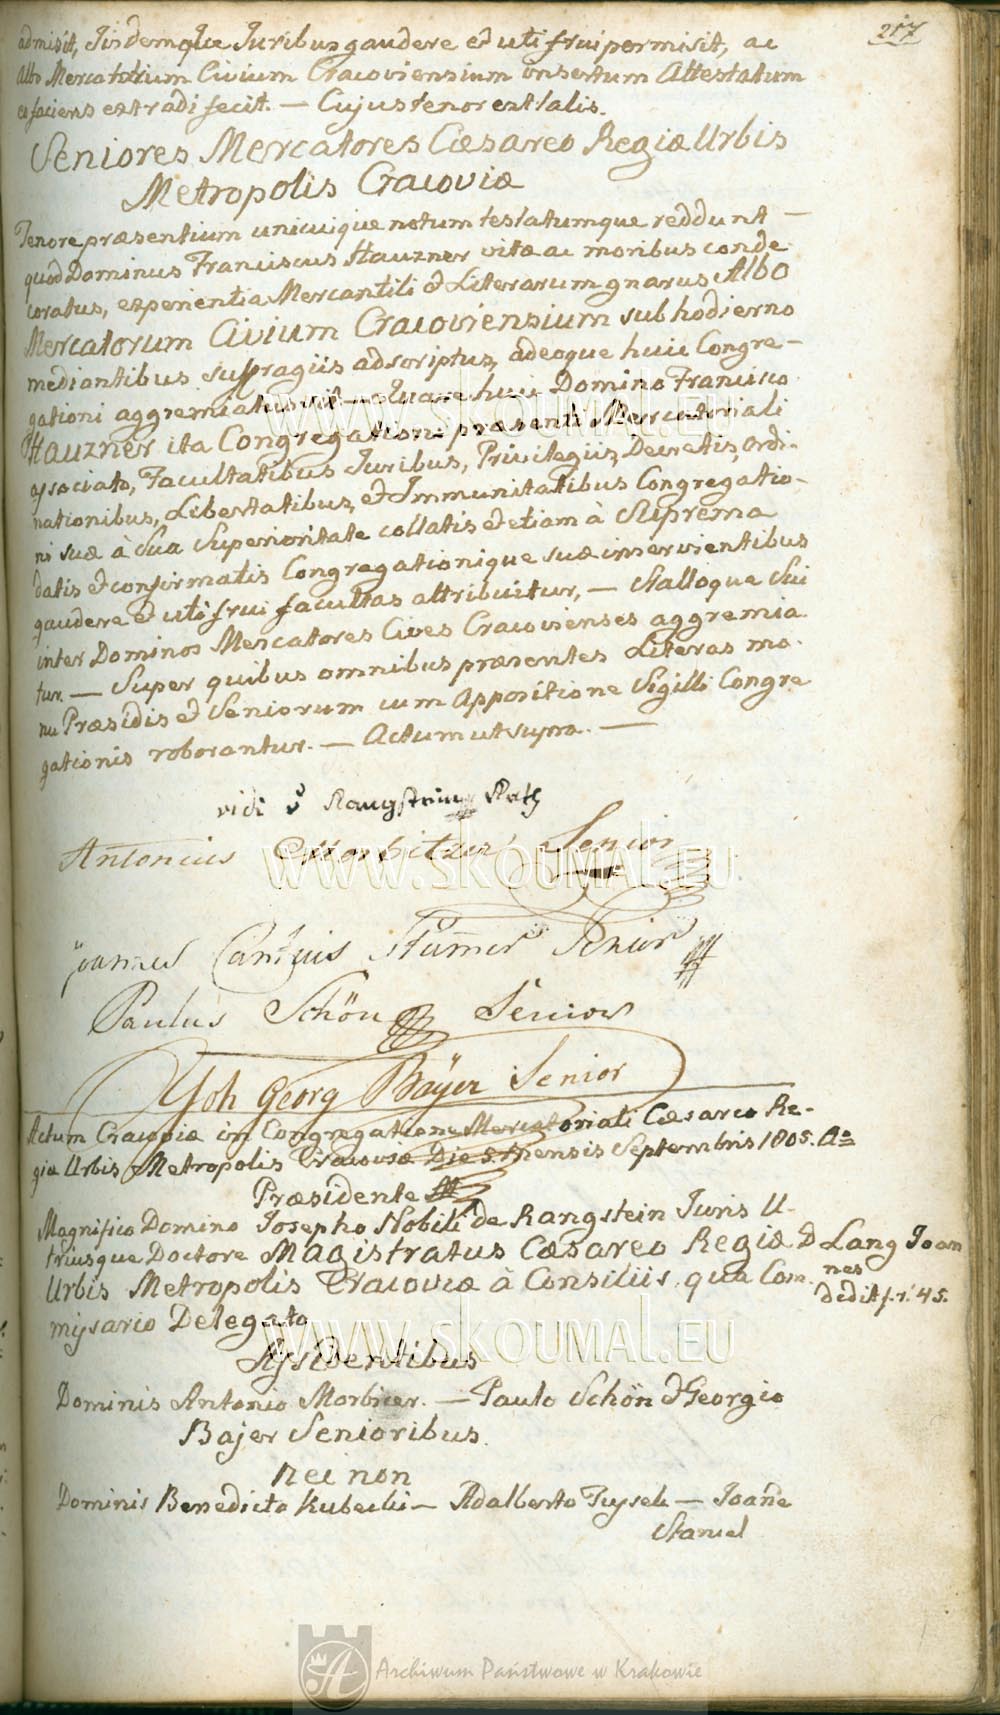 217
admisit, Iisdemque Iuribus gaudere et uti frui permisit, ac
Albo Mercatorum Civium Cracoviensium insertum Attestatum
ex faciens extradi fecit. — Cujus tenor est talis.
Seniores Mercatores Cæsareo Regiæ Urbis
Metropolis Cracoviæ
Tenore præsentium unicuique notum testatumque reddunt —
quod Dominus Franciscus Hauzner vitæ ac moribus conde
coratus, experientia Mercantili et Literarum gnarus Albo
Mercatorum Civium Cracoviensium sub hodierno
mediantibus suffragiis adscriptus, adeoque huic Congre-
gationi aggremiatus sit — Quare huic Domino Francisco
Hauzner ita Congregationi præsenti Mercatoriali
associato, Facultatibus Iuribus, Privilegiis, Decretis, Ordi-
nationibus, Libertatibus, et Immunitatibus Congregatio-
ni suæ à Sua Superioritate collatis et etiam à Suprema
datis et confirmatis Congregationique suæ inservientibus
gaudere et uti frui facultas attribuitur, — Stalloque Sui
inter Dominos Mercatores Cives Cracovienses aggremia
tur. — Super quibus omnibus præsentes Literas ma-
nu Præsidis et Seniorum cum Appositione Sigilli Congre
gationis roborantur. — Actum ut supra. —
vidi Rangstein Rath
Antonius Morbitzer Senior
Joannes Cantius Stumer Senior
Paulus Schön Senior
Joh Georg Bäyer Senior
Actum Cracoviæ in Congregatione Mercatoriali Cæsareo Re-
giæ Urbis Metropolis Cracoviæ Die 5. Mensis Septembris 1805. Ao
Præsidente
Magnifico Domino Iosepho Nobili de Rangstein Juris U-
triusque Doctore Magistratus Cæsareo Regiæ
Urbis Metropolis Cracoviæ à Consiliis, qua Com-
missario Delegato
D Lang Joan
nes
dedit f. r. 45.
Assidentibus
Dominis Antonio Morbicer. — Paulo Schön et Georgio
Bajer Senioribus
Nec non
Dominis Benedicto Kubecki — Adalberto Fuysek — Joane
Stamel
WWW.SKOUMAL.EU
WWW.SKOUMAL.EU
WWW.SKOUMAL.EU
Archiwum Państwowe w Krakowie